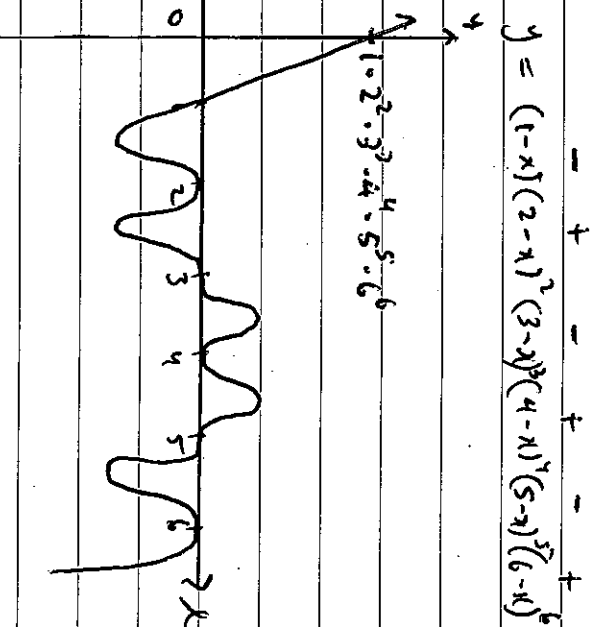 - + - + - +
y = (1-x)(2-x)²(3-x)³(4-x)⁴(5-x)⁵(6-x)⁶
y
1·2²·3³·4⁴·5⁵·6⁶
0
2
3
4
5
6
x